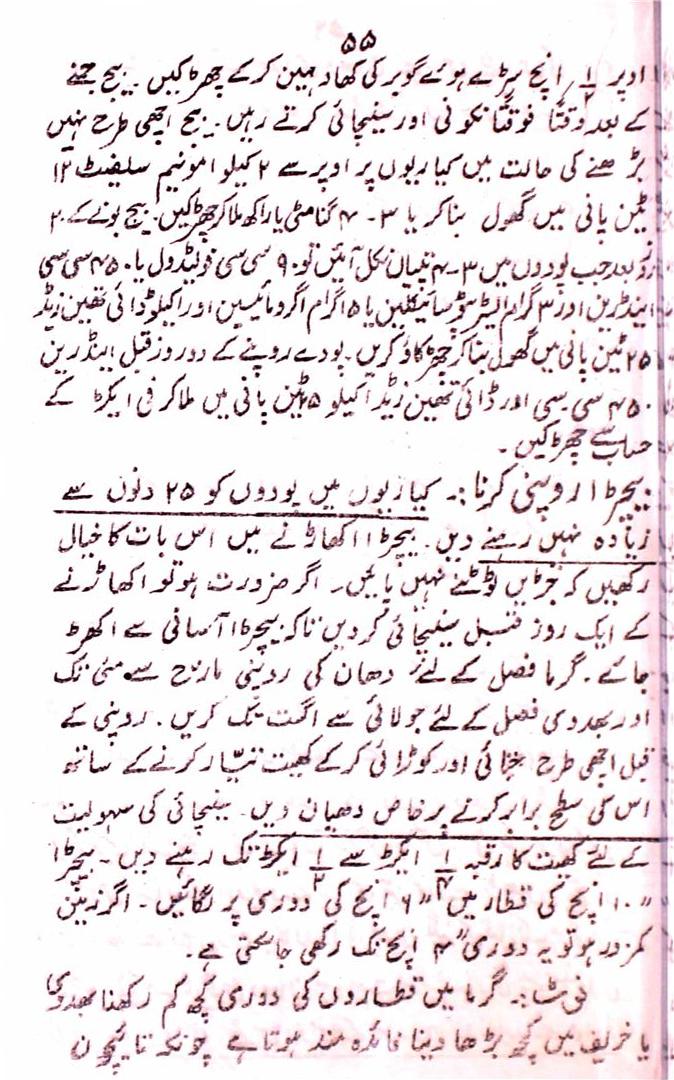 ۵۵
اوپر ۱/۲ انچ سڑے ہوئے گوبر کی کھاد مہین کر کے چھڑکیں۔ بیج جمنے
کے بعد وقتاً فوقتاً نکونی اور سینچائی کرتے رہیں۔ بیج اچھی طرح نہیں
بڑھنے کی حالت میں کیاریوں پر اوپر سے ۲ کیلو امونیم سلفیٹ ۱۲
ٹین پانی میں گھول بنا کر یا ۳۔۴ گنا مٹی یا راکھ ملا کر چھڑکیں۔ بیج بونے کے ۲۰
روز بعد جب پودوں میں ۳۔۴ پتیاں نکل آئیں تو ۹۰ سی سی فولیڈول یا ۴۵۰ سی سی
اینڈرین اور ۳ گرام اسٹرپٹوسائیکلین یا ۱۵ گرام اگرومائیسین اور اکیلو ڈائی تھین زیڈ
۲۵ ٹین پانی میں گھول بنا کر چھڑکاؤ کریں۔ پودے روپنے کے دو روز قبل اینڈرین
۴۵۰ سی سی اور ڈائی تھین زیڈ اکیلو ۲۵ ٹین پانی میں ملا کر فی ایکڑ کے
حساب سے چھڑکیں۔
بیچڑا روپنی کرنا:۔ کیاریوں میں پودوں کو ۲۵ دنوں سے
زیادہ نہیں رہنے دیں۔ بیچڑا اکھاڑنے میں اس بات کا خیال
رکھیں کہ جڑیں ٹوٹنے نہیں پائیں۔ اگر ضرورت ہو تو اکھاڑنے
کے ایک روز قبل سینچائی کر دیں تاکہ بیچڑا آسانی سے اکھڑ
جائے۔ گرما فصل کے لئے دھان کی روپنی مارچ سے مئی تک
اور بھدوی فصل کے لئے جولائی سے اگست تک کریں۔ روپنی کے
قبل اچھی طرح جتائی اور کوڑائی کر کے کھیت تیار کرنے کے ساتھ
اس کی سطح برابر کرنے پر خاص دھیان دیں۔ سینچائی کی سہولیت
کے لئے کھیت کا رقبہ ۱/۴ ایکڑ سے ۱/۲ ایکڑ تک رہنے دیں۔ بیچڑا
"۱۰ انچ کی قطار میں "۶ انچ کی دوری پر لگائیں۔ اگر زمین
کمزور ہو تو یہ دوری "۴ انچ تک رکھی جا سکتی ہے۔
نوٹ:۔ گرما میں قطاروں کی دوری کچھ کم رکھنا بھدوی
یا خریف میں کچھ بڑھا دینا فائدہ مند ہوتا ہے چونکہ تائیچون